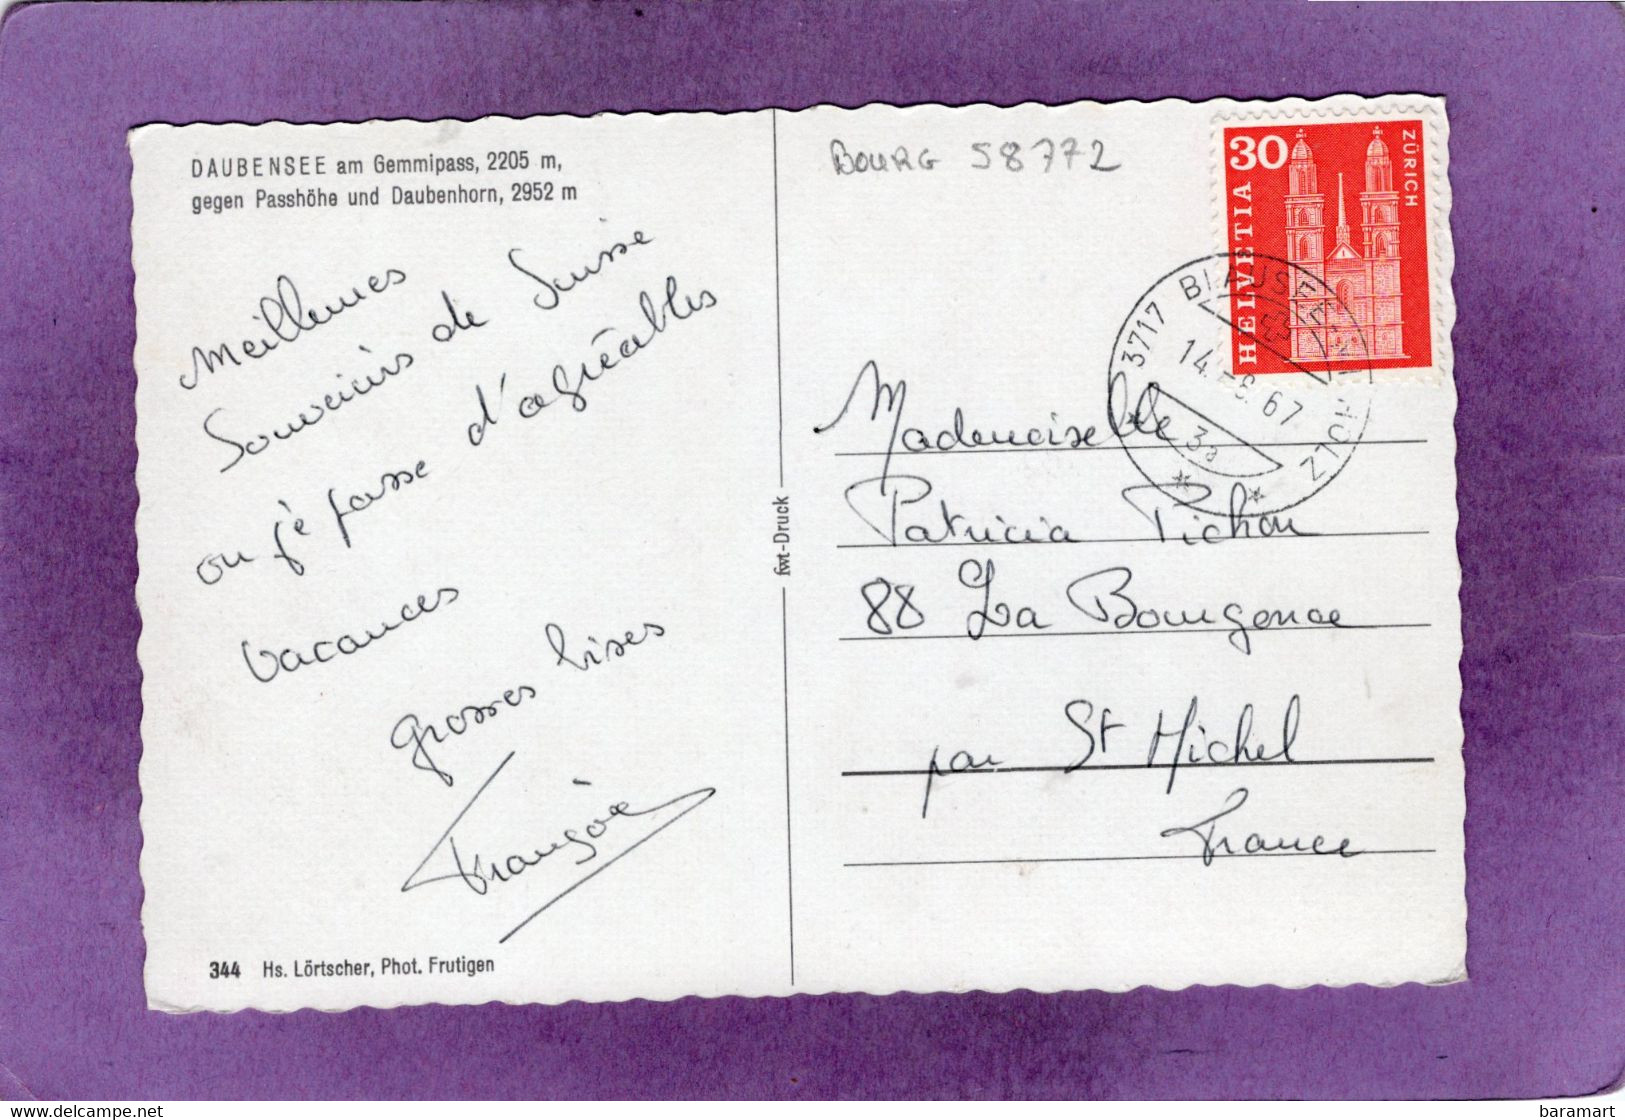 DAUBENSEE am Gemmipass, 2205 m,
gegen Passhöhe und Daubenhorn, 2952 m
Meilleures
Souvenirs de Suisse
ou je passe d'agréables
vacances
grosses bises
Françoise
344 Hs. Lörtscher, Phot. Frutigen
fwt-Druck
BOURG 58772
30
HELVETIA
ZÜRICH
3717 BLAUSEE-MITHOLZ
67
3a
Mademoiselle
Patricia Pichon
88 La Bourgonce
par St Michel
France
www.delcampe.net
baramart